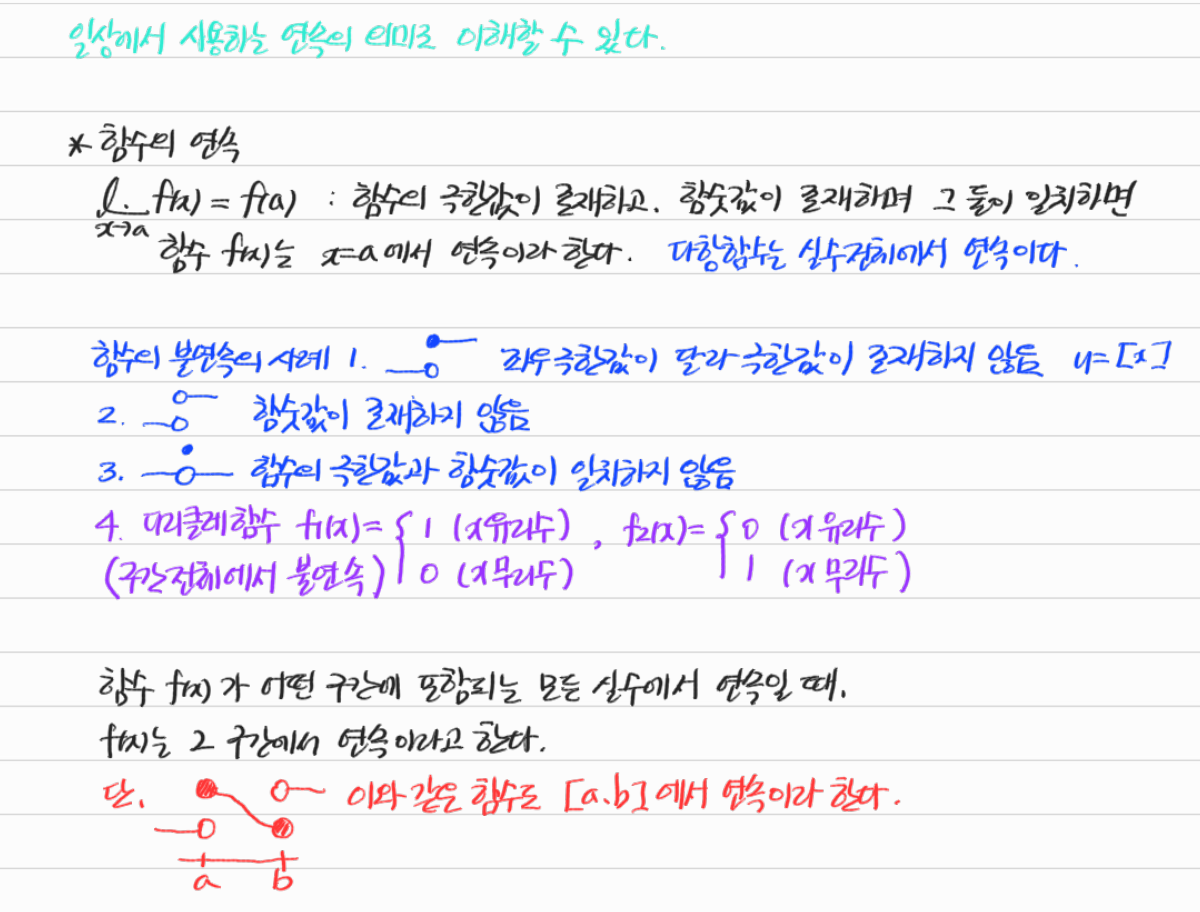 일상에서 사용하는 연속의 의미로 이해할 수 있다.
* 함수의 연속
lim f(x) = f(a) : 함수의 극한값이 존재하고, 함숫값이 존재하며 그 둘이 일치하면
x→a
함수 f(x)는 x=a에서 연속이라 한다. 다항함수는 실수전체에서 연속이다.
함수의 불연속의 사례 1. 좌우극한값이 달라 극한값이 존재하지 않음 y=[x]
2. 함숫값이 존재하지 않음
3. 함수의 극한값과 함숫값이 일치하지 않음
4. 디리클레함수 f1(x)= { 1 (x유리수) , f2(x)= { 0 (x유리수)
(구간전체에서 불연속) 0 (x무리수) 1 (x무리수)
함수 f(x)가 어떤 구간에 포함되는 모든 실수에서 연속일 때,
f(x)는 그 구간에서 연속이라고 한다.
단, 이와 같은 함수도 [a.b]에서 연속이라 한다.
a b